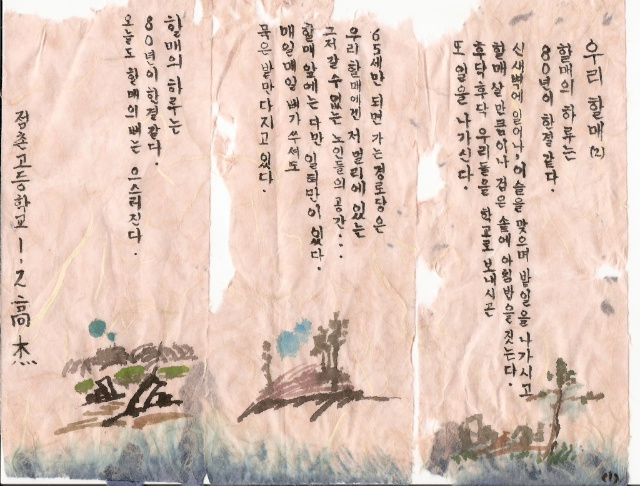 우리 할매 (2)
할매의 하루는
80년이 한결같다.
신새벽에 일어나, 이슬을 맞으며 밭일을 나가시고
할매 살만큼이나 검은 솥에 아침밥을 짓는다.
후닥후닥 우리들을 학교로 보내시곤
또 일을 나가신다.
65세만 되면 가는 경로당은
우리 할매에겐 저 멀리에 있는
그저 갈 수 없는 노인들의 공간...
할매 앞에는 다만 일터만이 있다.
매일매일 뼈가 쑤셔도
묵은 밭만 다지고 있다.
할매의 하루는
80년이 한결같다.
오늘도 할매의 뼈는 으스러진다.
점촌고등학교 1-2 高杰
(1)